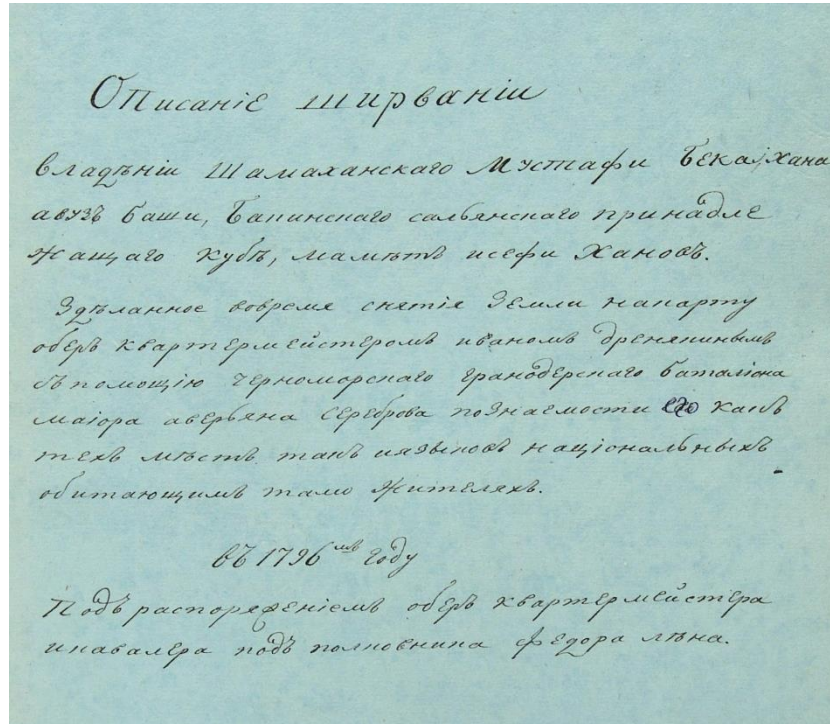 Описаніе ширваніи
владѣніи Шамаханскаго Мустафи Бека, Хана
авузъ баши, Бакинскаго сальянскаго принадле
жащаго кубѣ, мамѣтъ исефи Хановъ.
Здѣланное вовремя снятія Земли накарту
оберъ квартермейстеромъ иваномъ дренякинымъ
съпомощію черноморскаго гранодерскаго баталіона
маіора аверьяна Сереброва познаемости его какъ
техъ мѣстъ такъ иязыковъ національныхъ
обитающимъ тамо жителяхъ.
въ 1796мъ году
Подъ распоряженіемъ оберъ квартермейстера
икавалера подъ полковника федора лѣна.